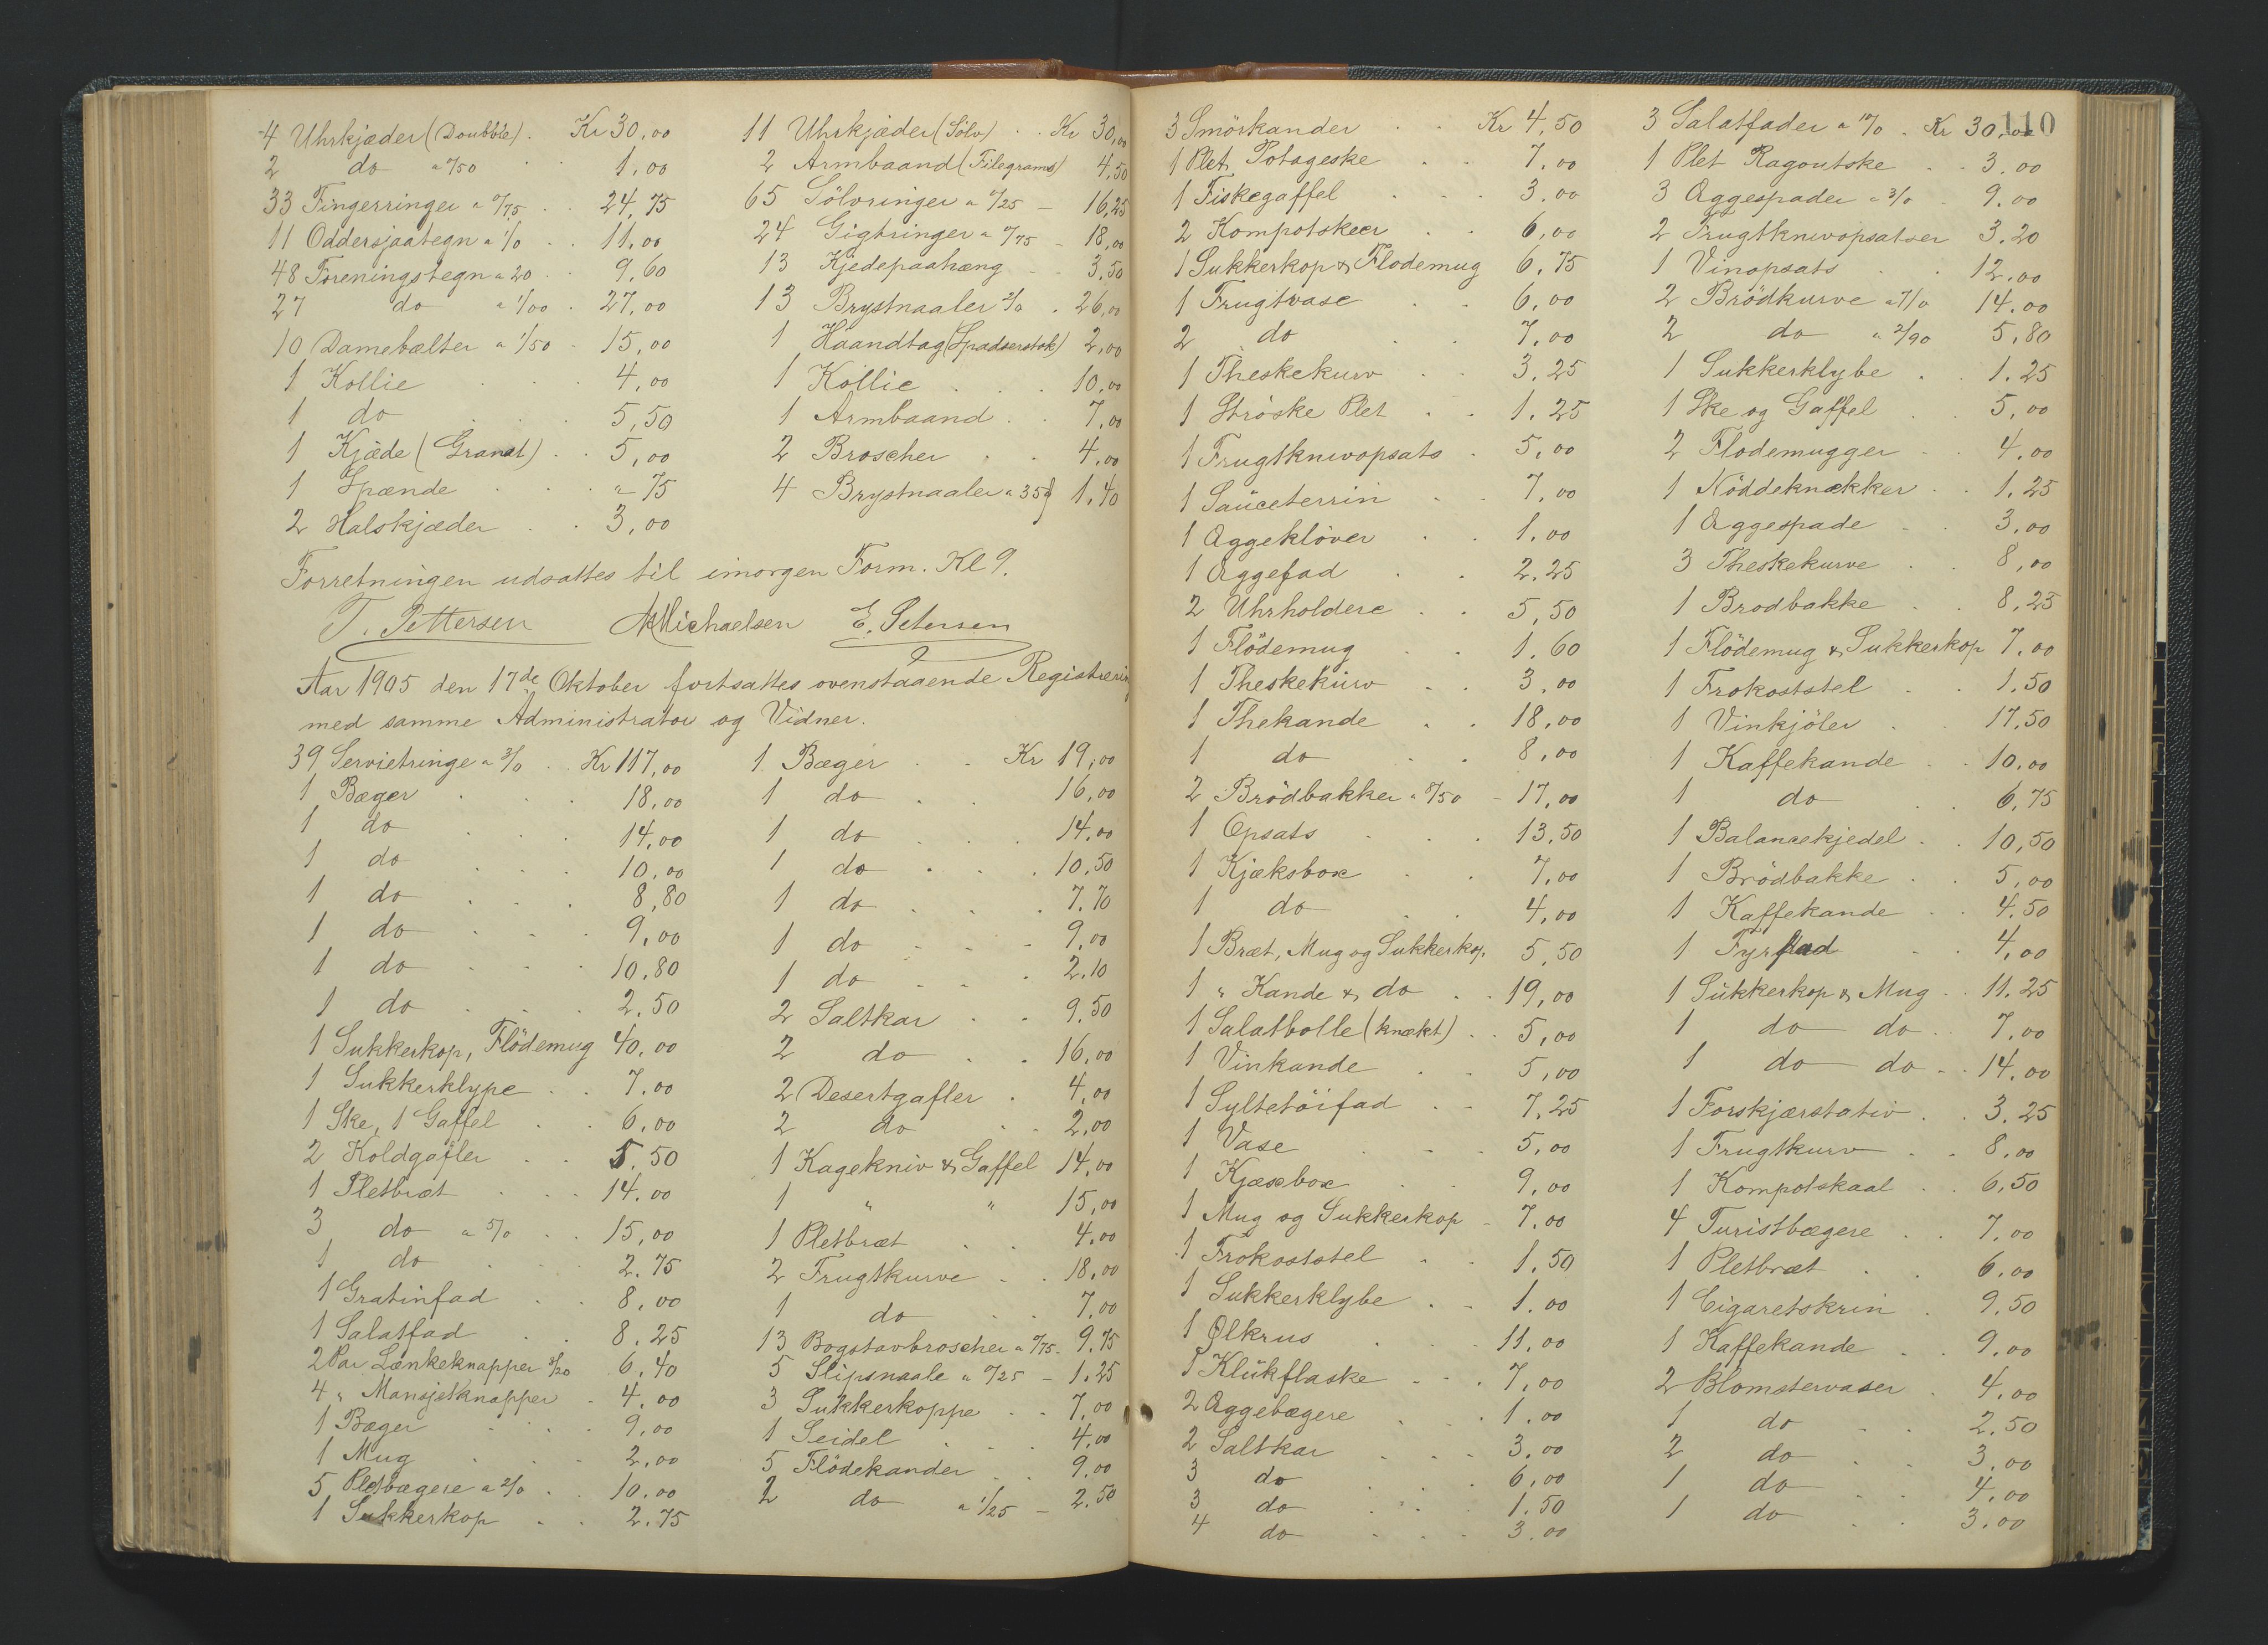 4 Uhrkjæder (Doubble) . Kr 30,00
2 do a "/50 1,00
33 Fingerringer a "/75 . . 24,75
11 Oddersjaategn a 1/0 . . 11,00
48 Foreningstegn a 20 . . 9,60
27 do a 1/00 . 27,00
10 Damebælter a 1/50 - 15,00
1 Kollie . . . 4,00
1 do . . . 5,50
1 Kjæde (Granat) . . 5,00
1 Spænde . . . " 75
2 Halskjæder . . 3,00
11 Uhrkjæder (Sölv) . . Kr 30,00
2 Armbaand (Filegrams) 4,50
65 Sölvringer a "/25 - 16,25
24 Gigtringer a "/75 - 18,00
13 Kjedepaahæng - 3,50
13 Brystnaaler 2/0 . 26,00
1 Haandtag (Spadserstok) 2,00
1 Kollie . . . 10,00
1 Armbaand . . 7,00
2 Broscher . . 4,00
4 Brystnaaler a 35 1,40
Forretningen udsattes til imorgen Form. Kl 9.
T. Pettersen Michaelsen E. Petersen
Aar 1905 den 17de Oktober fortsattes ovenstaaende Registrering
med samme Administrator og Vidner.
39 Servietringe a 3/0 . . Kr 117,00
1 Bæger . . . 18,00
1 do . . . 14,00
1 do . . . 10,00
1 do . . . 8,80
1 do . . . 9,00
1 do . . . 10,80
1 do . . . 2,50
1 Sukkerkop, Flödemug 40,00
1 Sukkerklype . . 7,00
1 Ske, 1 Gaffel . . 6,00
2 Koldgafler . . 5,50
1 Pletbræt . . . 14,00
3 do a 5/0 . . 15,00
1 do . . 2.75
1 Gratinfad . . 8,00
1 Salatfad . . 8.25
2 Par Lænkeknapper 3/20 6,40
4 " Mansjetknapper . 4,00
1 Bæger . . . 9,00
1 Mug . . . 2,00
5 Pletbægere a 2/0 . . 10.00
1 Sukkerkop . . 2.75
1 Bæger . . Kr 19,00
1 do . . 16,00
1 do . . . 14,00
1 do . . . 10,50
1 do . . . 7.70
1 do . . . 9,00
1 do . . . 2.10
2 Saltkar . . 9.50
2 do . . 16,00
2 Desertgafler . 4,00
2 do . . 2,00
1 Kagekniv & Gaffel 14,00
1 " " 15,00
1 Pletbræt . . 4,00
2 Frugtkurve . . 18,00
1 do . . 7,00
13 Bogstavbroscher a "/75 - 9.75
5 Slipsnaale a "/25 - 1.25
3 Sukkerkoppe . . 7,00
1 Seidel . . . 4,00
5 Flödekander . . 9,00
2 do a 1/25 - 2.50
110
3 Smörkander . . Kr 4,50
1 Plet Potageske . . 7,00
1 Fiskegaffel . . . 3,00
2 Kompotskeer . . 6,00
1 Sukkerkop & Flodemug 6,75
1 Frugtvase . . 6,00
2 do . . 7,00
1 Theskekurv . . 3,25
1 Ströske Plet . . 1.25
1 Frugtknivopsats . 5,00
1 Sauceterrin . . 7,00
1 Æggeklöver . . 1,00
1 Æggefad . . 2.25
2 Uhrholdere . . 5,50
1 Flödemug . . 1.60
1 Theskekurv . . 3,00
1 Thekande . . 18,00
1 do . . 8,00
2 Brödbakker a 8/50 - 17,00
1 Opsats . . . 13,50
1 Kjæksbox . . 7,00
1 do . . 4,00
1 Bræt, Mug og Sukkerkop. 5,50
1 " Kande & do . . 19,00
1 Salatbolle (knækt) . . 5,00
1 Vinkande . . 5,00
1 Syltetöifad . . 7,25
1 Vase . . . 5,00
1 Kjæxbox . . 9,00
1 Mug og Sukkerkop - 7.00
1 Frokoststel . . 1.50
1 Sukkerklybe . . 1.00
1 Ølkrus . . 11,00
1 Klukflaske . . . 7,00
2 Æggebægere . . . 1.00
2 Saltkar . . . 3,00
3 do . . . 6,00
3 do . . . 1.50
4 do . . . 3.00
3 Salatfader a 10/0 . Kr 30,00
1 Plet Ragoutske . . 3,00
3 Æggespader a 3/0 - 9,00
2 Frugtknivopsatser 3.20
1 Vinopsats . . 12,00
2 Brödkurve a 7/0 14,00
2 do a 2/90 5,80
1 Sukkerklybe . . 1.25
1 Ske og Gaffel . . 5,00
2 Flodemugger . . 4,00
1 Nöddeknækker . . 1.25
1 Æggespade . . 3,00
3 Theskekurve . . 8,00
1 Brodbakke . . 8,25
1 Flödemug & Sukkerkop 7,00
1 Frokoststel . . 1.50
1 Vinkjöler . . 17.50
1 Kaffekande . . 10.00
1 do . . 6,75
1 Balancekjedel . . 10,50
1 Brödbakke . . 5,00
1 Kaffekande . . 4.50
1 Fyrfad . . 4,00
1 Sukkerkop & Mug . . 11.25
1 do do . . 7,00
1 do do . . 14,00
1 Forskjærstativ . . 3.25
1 Frugtkurv . . 8,00
1 Kompotskaal . . 6,50
4 Turistbægere . . 7,00
1 Pletbræt . . 6.00
1 Cigaretskrin . 9,50
1 Kaffekande . . 9,00
2 Blomstervaser . 4,00
1 do . . 2.50
2 do . . 3,00
1 do . . 4.00
1 do . . 3.00